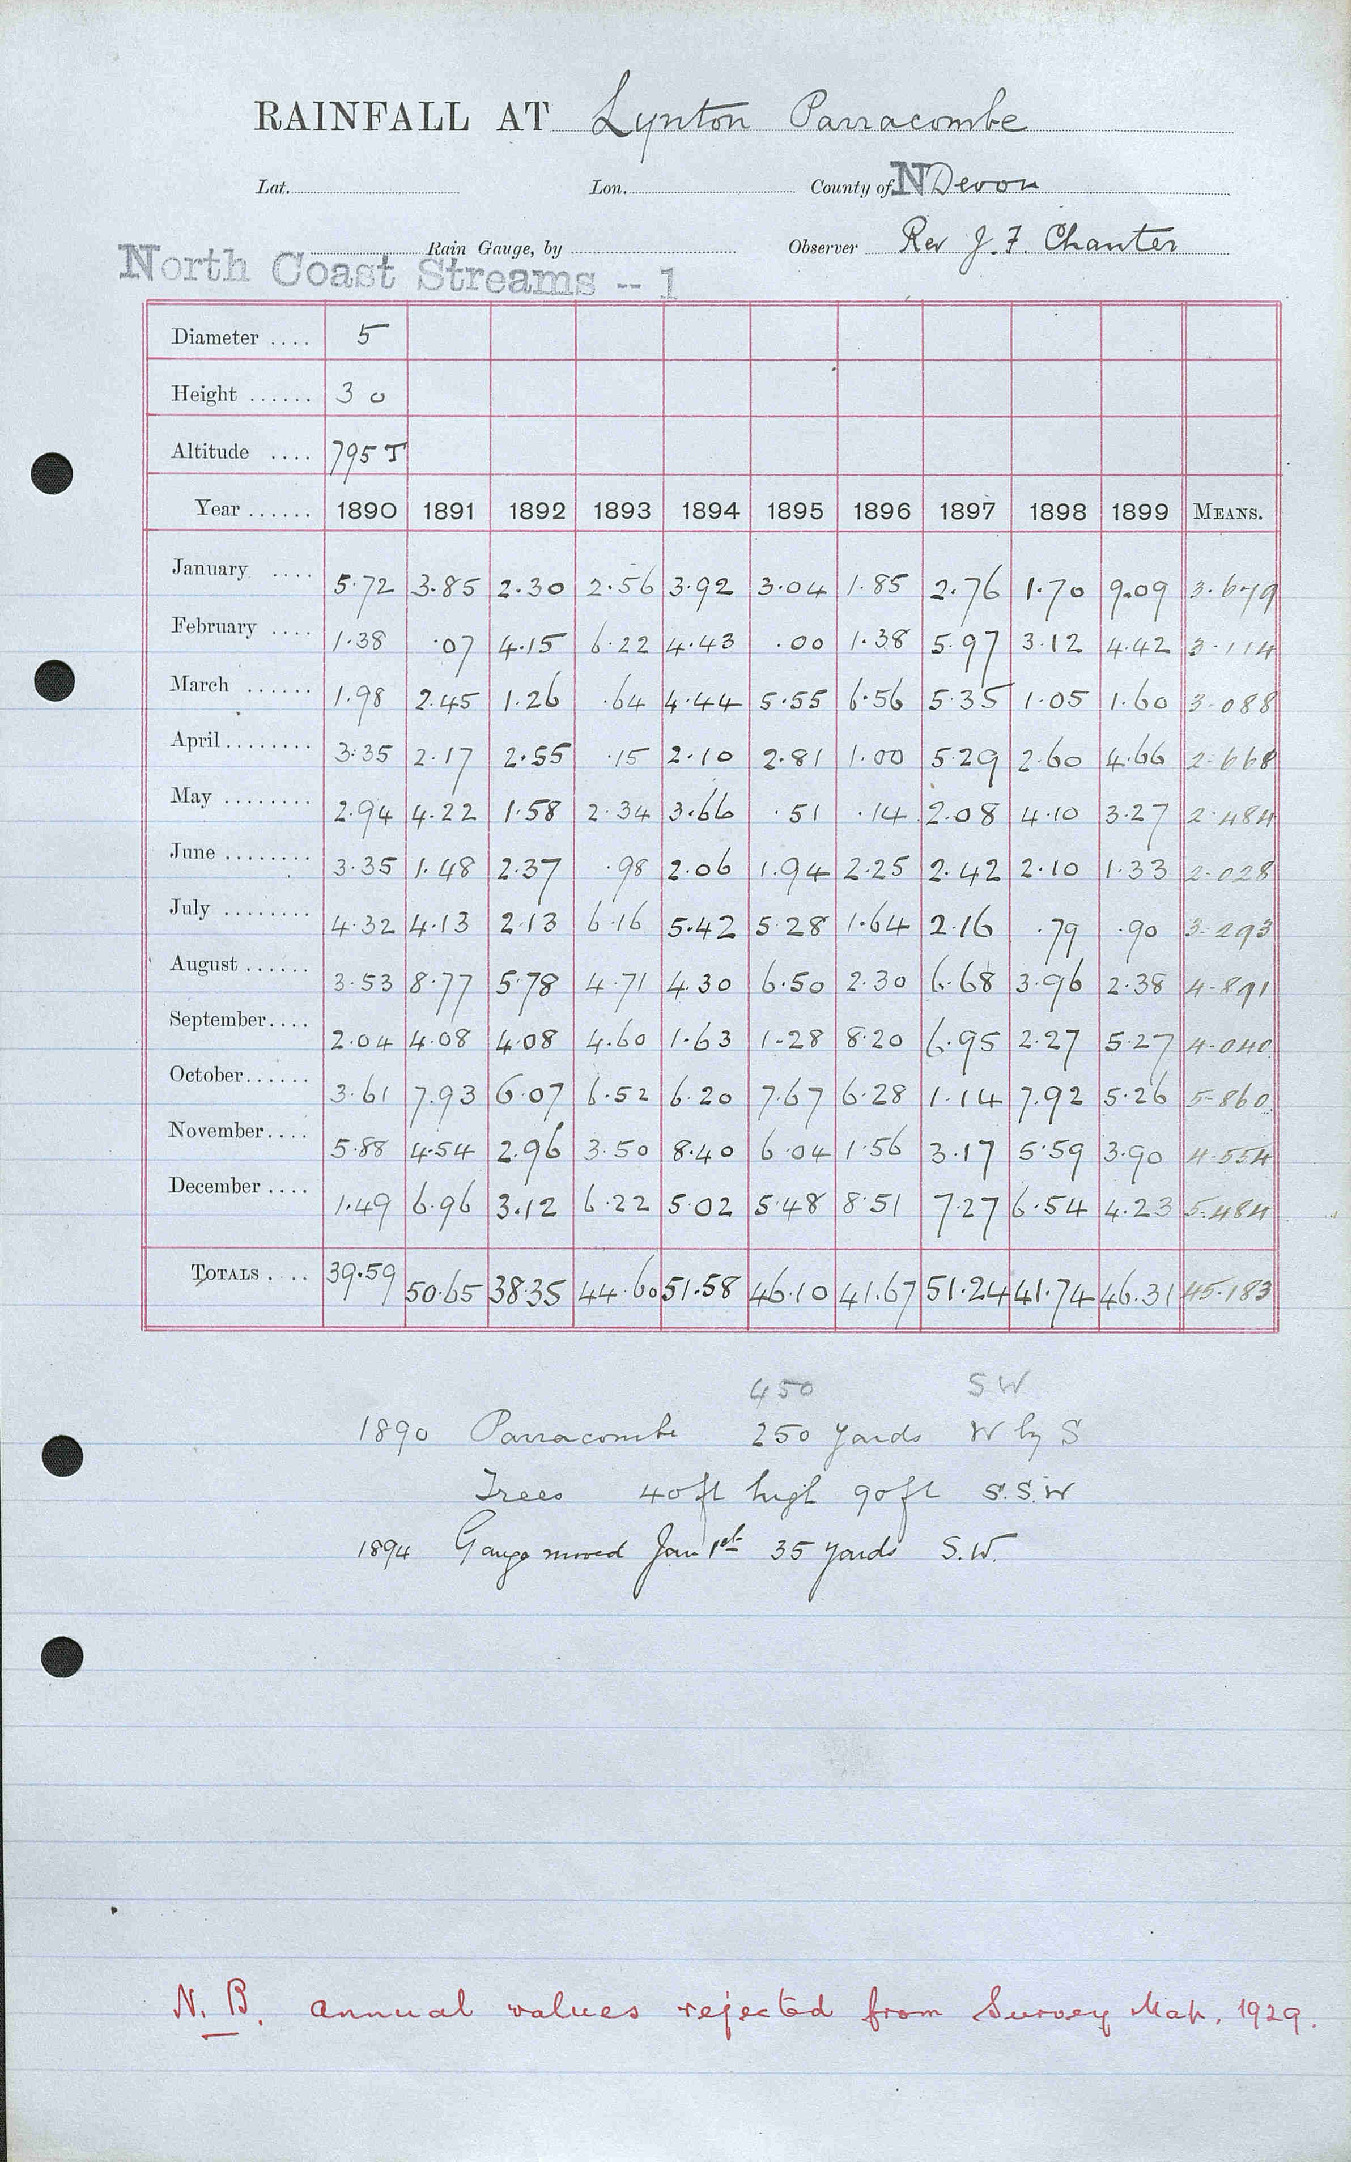 RAINFALL AT Lynton Parracombe
Lat. Lon. County of N Devon
Rain Gauge, by Observer Rev J. F. Chanter
North Coast Streams -- 1
Diameter .... 5
Height ...... 3 0
Altitude .... 795 T
Year ...... 1890 1891 1892 1893 1894 1895 1896 1897 1898 1899 MEANS.
January .... 5.72 3.85 2.30 2.56 3.92 3.04 1.85 2.76 1.70 9.09 3.679
February .... 1.38 .07 4.15 6.22 4.43 .00 1.38 5.97 3.12 4.42 3.114
March ...... 1.98 2.45 1.26 .64 4.44 5.55 6.56 5.35 1.05 1.60 3.088
April ........ 3.35 2.17 2.55 .15 2.10 2.81 1.00 5.29 2.60 4.66 2.668
May ........ 2.94 4.22 1.58 2.34 3.66 .51 .14 2.08 4.10 3.27 2.484
June ........ 3.35 1.48 2.37 .98 2.06 1.94 2.25 2.42 2.10 1.33 2.028
July ........ 4.32 4.13 2.13 6.16 5.42 5.28 1.64 2.16 .79 .90 3.293
August ...... 3.53 8.77 5.78 4.71 4.30 6.50 2.30 6.68 3.96 2.38 4.891
September .... 2.04 4.08 4.08 4.60 1.63 1.28 8.20 6.95 2.27 5.27 4.040
October ...... 3.61 7.93 6.07 6.52 6.20 7.67 6.28 1.14 7.92 5.26 5.860
November .... 5.88 4.54 2.96 3.50 8.40 6.04 1.56 3.17 5.59 3.90 4.554
December .... 1.49 6.96 3.12 6.22 5.02 5.48 8.51 7.27 6.54 4.23 5.484
TOTALS .... 39.59 50.65 38.35 44.60 51.58 46.10 41.67 51.24 41.74 46.31 45.183
450 SW
1890 Parracombe 250 yards W by S
Trees 40ft high 90ft S.S.W
1894 Gauge moved Jan 1st 35 yards S.W.
N.B. annual values rejected from Survey Map. 1929.